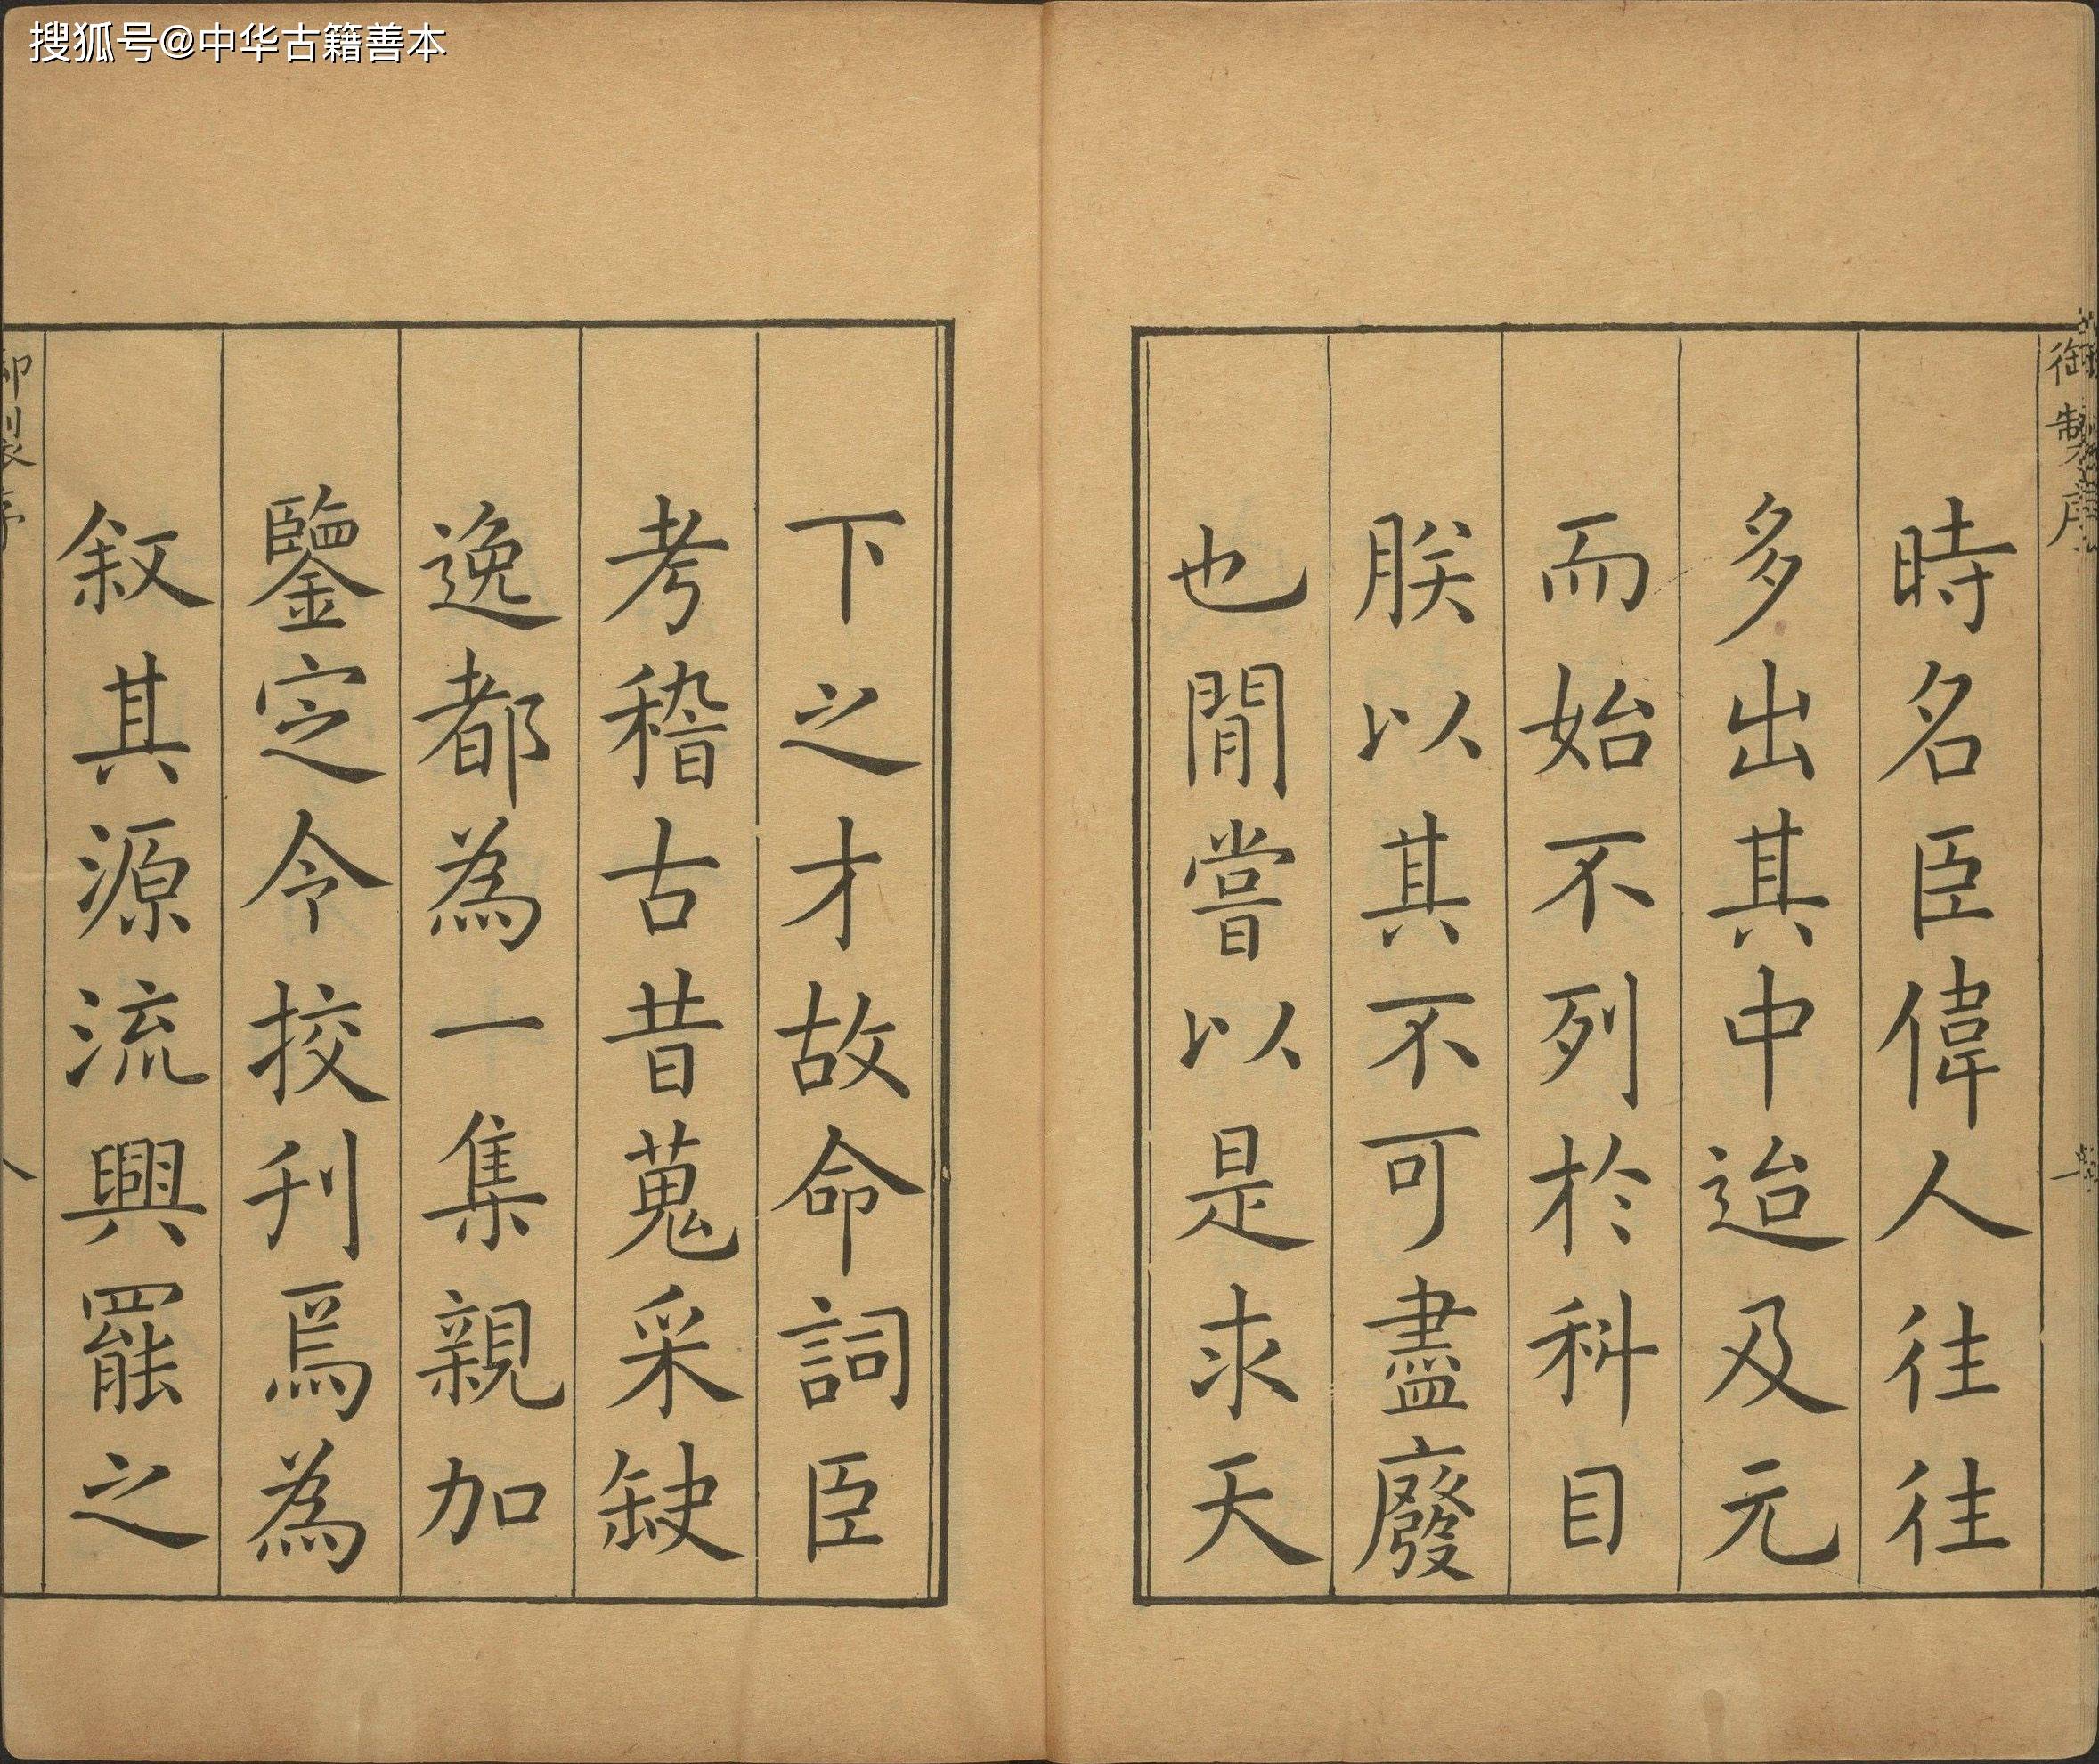 搜狐号@中华古籍善本
御製序
時名臣偉人往往
多出其中迨及元
而始不列於科目
朕以其不可盡廢
也閒嘗以是求天
下之才故命詞臣
考稽古昔蒐采缺
逸都為一集親加
鑒定令挍刊焉為
叙其源流興罷之
御製序